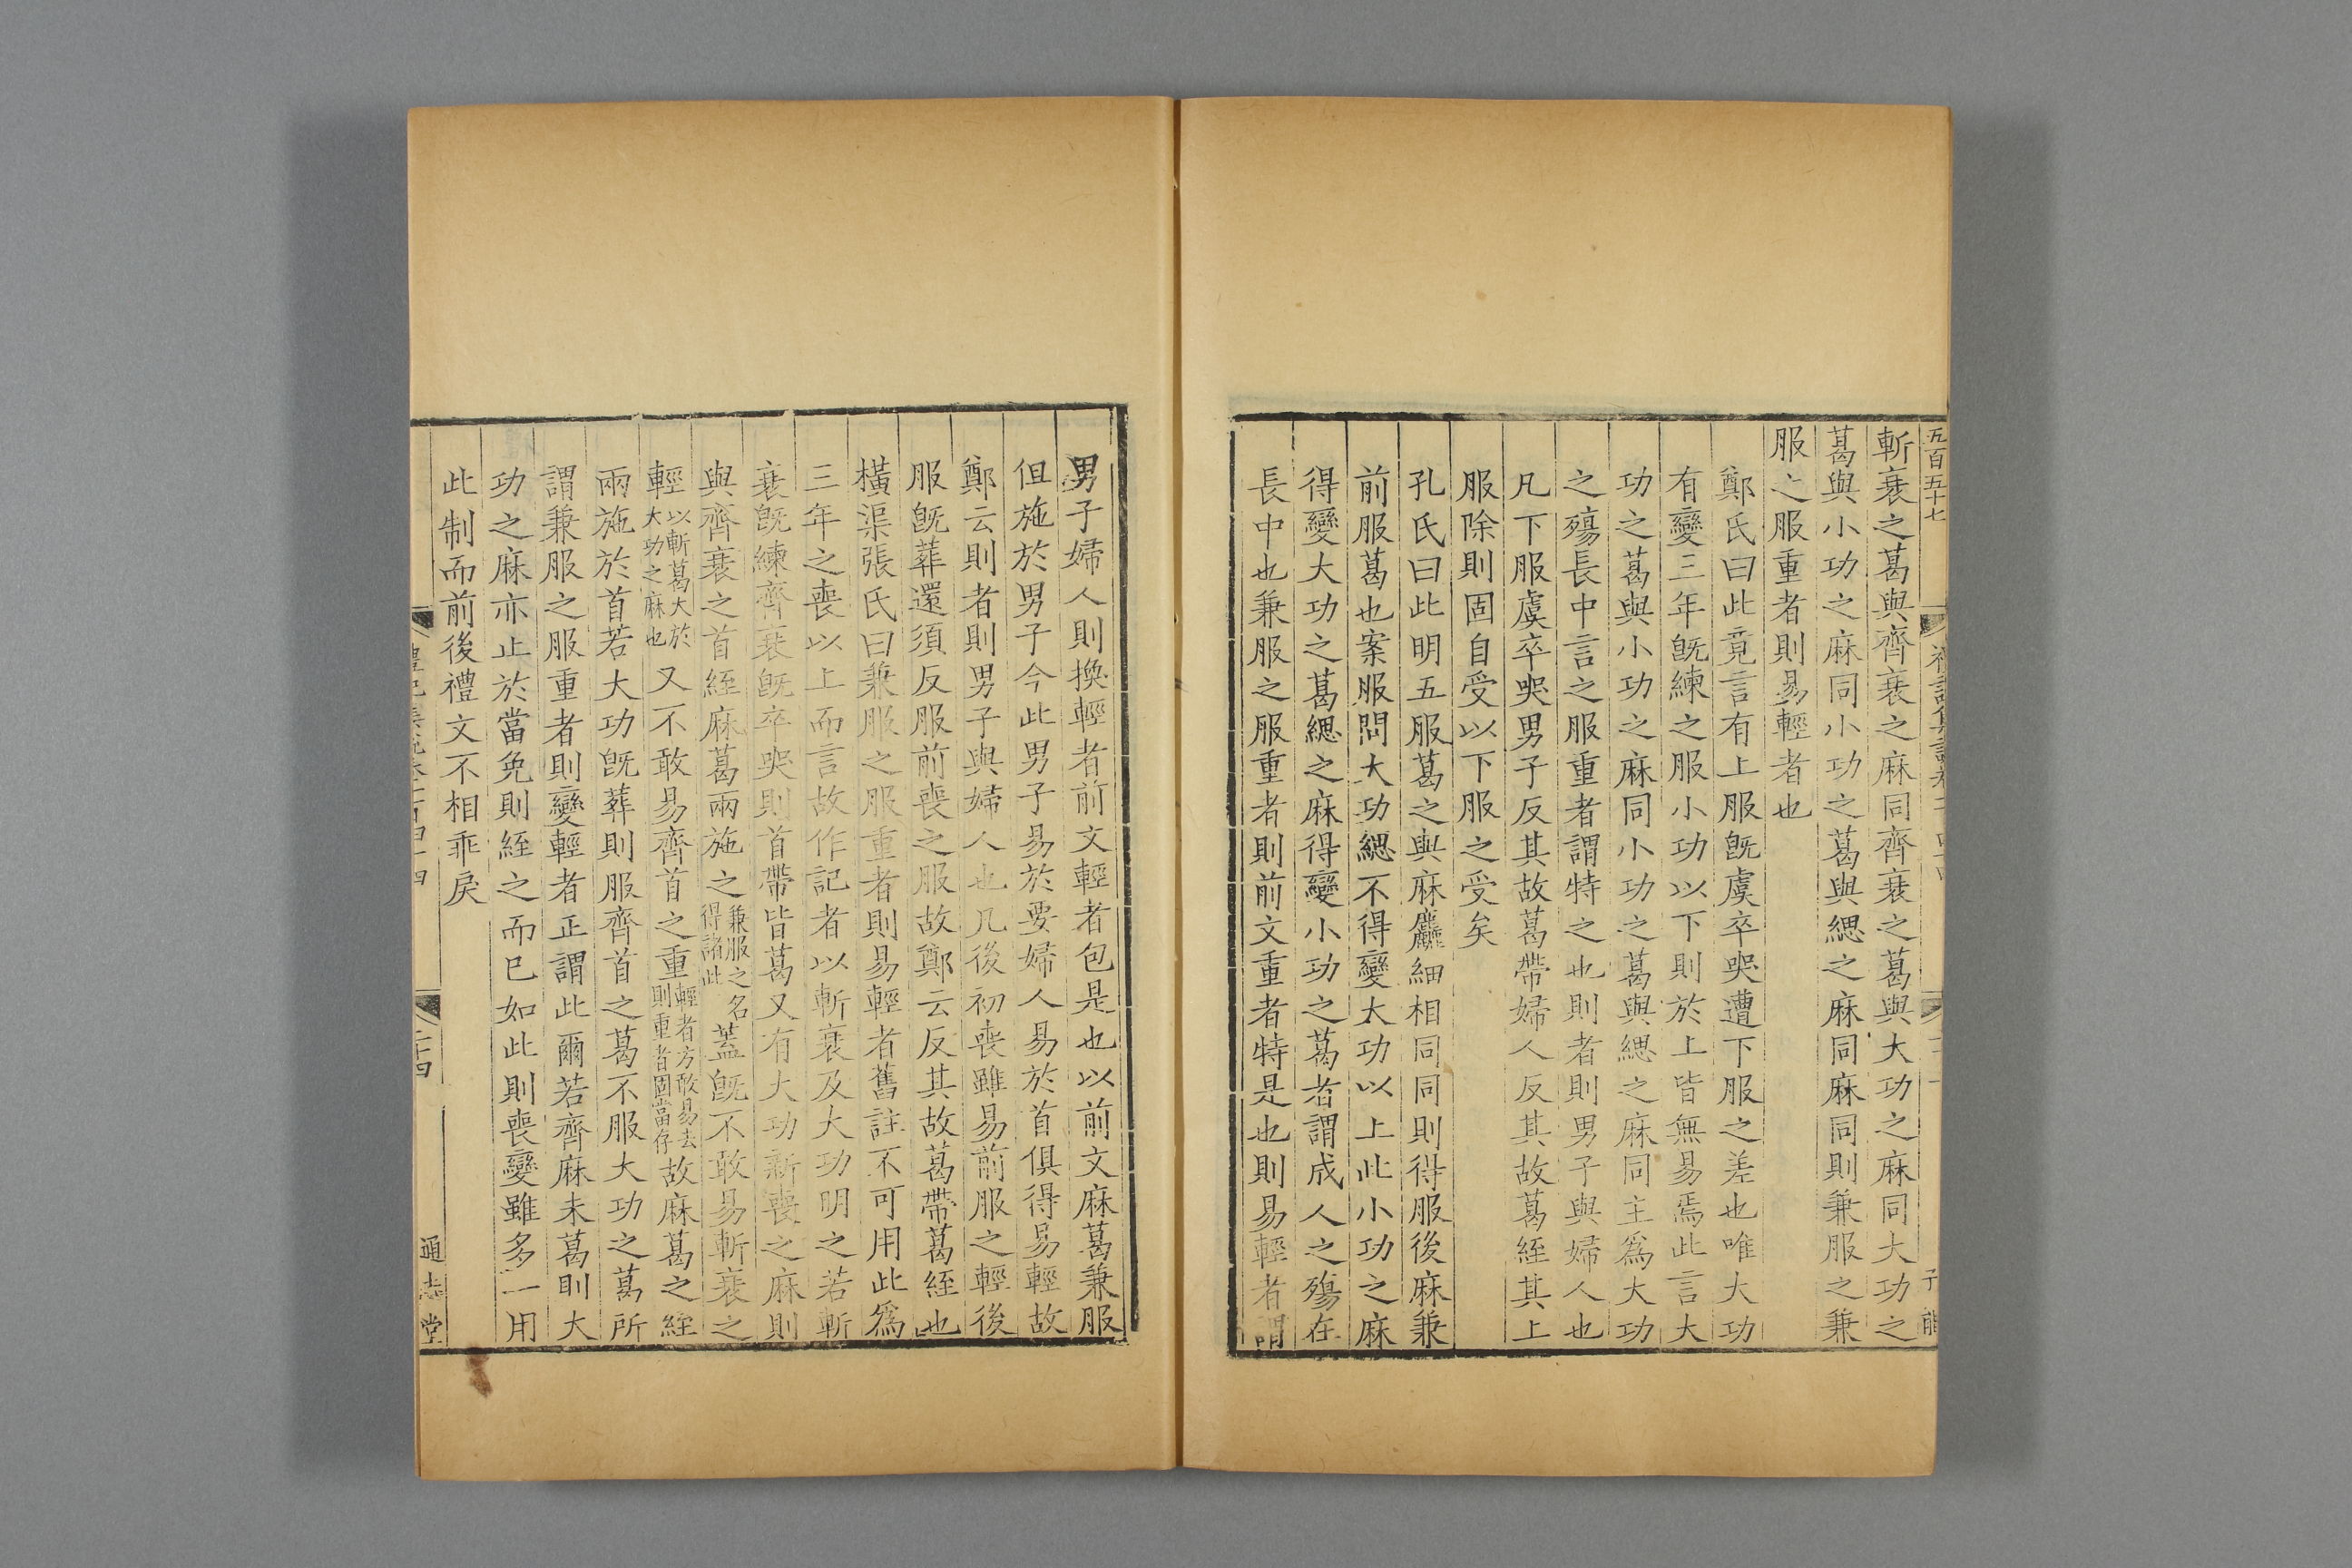 五百五十七
斬衰之葛與齊衰之麻同齊衰之葛與大功之麻同大功之
葛與小功之麻同小功之葛與緦之麻同麻同則兼服之兼
服之服重者則易輕者也
鄭氏曰此竟言有上服旣虞卒哭遭下服之差也唯大功
有變三年旣練之服小功以下則於上皆無易焉此言大
功之葛與小功之麻同小功之葛與緦之麻同主爲大功
之殤長中言之服重者謂特之也則者則男子與婦人也
凡下服虞卒哭男子反其故葛帶婦人反其故葛絰其上
服除則固自受以下服之受矣
孔氏曰此明五服葛之與麻麤細相同同則得服後麻兼
前服葛也案服問大功緦不得變大功以上此小功之麻
得變大功之葛緦之麻得變小功之葛者謂成人之殤在
長中也兼服之服重者則前文重者特是也則易輕者謂
男子婦人則換輕者前文輕者包是也以前文麻葛兼服
但施於男子今此男子易於要婦人易於首俱得易輕故
鄭云則者則男子與婦人也凡後初喪雖易前服之輕後
服旣葬還須反服前喪之服故鄭云反其故葛帶葛絰也
橫渠張氏曰兼服之服重者則易輕者舊註不可用此爲
三年之喪以上而言故作記者以斬衰及大功明之若斬
衰旣練齊衰旣卒哭則首帶皆葛又有大功新喪之麻則
與齊衰之首絰麻葛兩施之兼服之名得諸此蓋旣不敢易斬衰之
輕以斬葛大於大功之麻也又不敢易齊首之重輕者方敢易去則重者固當存故麻葛之絰
兩施於首若大功旣葬則服齊首之葛不服大功之葛所
謂兼服之服重者則變輕者正謂此爾若齊麻未葛則大
功之麻亦止於當免則絰之而已如此則喪變雖多一用
此制而前後禮文不相乖戾
通志堂